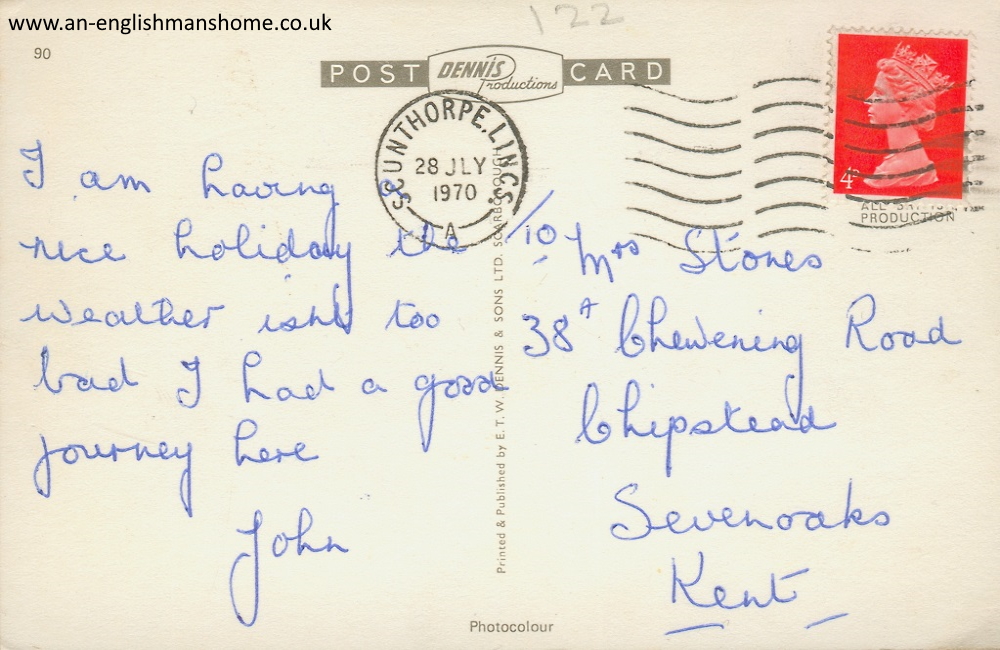 www.an-englishmanshome.co.uk
122
90
POST DENNIS Productions CARD
SCUNTHORPE. LINCS.
28 JLY
1970
A
4D
PRODUCTION
I am having a
nice holiday the
weather isnt too
bad I had a good
journey here
John
Printed & Published by E. T. W. DENNIS & SONS LTD. SCARBOROUGH
/10 Mrs Stones
38A Chevening Road
Chipstead
Sevenoaks
Kent
Photocolour